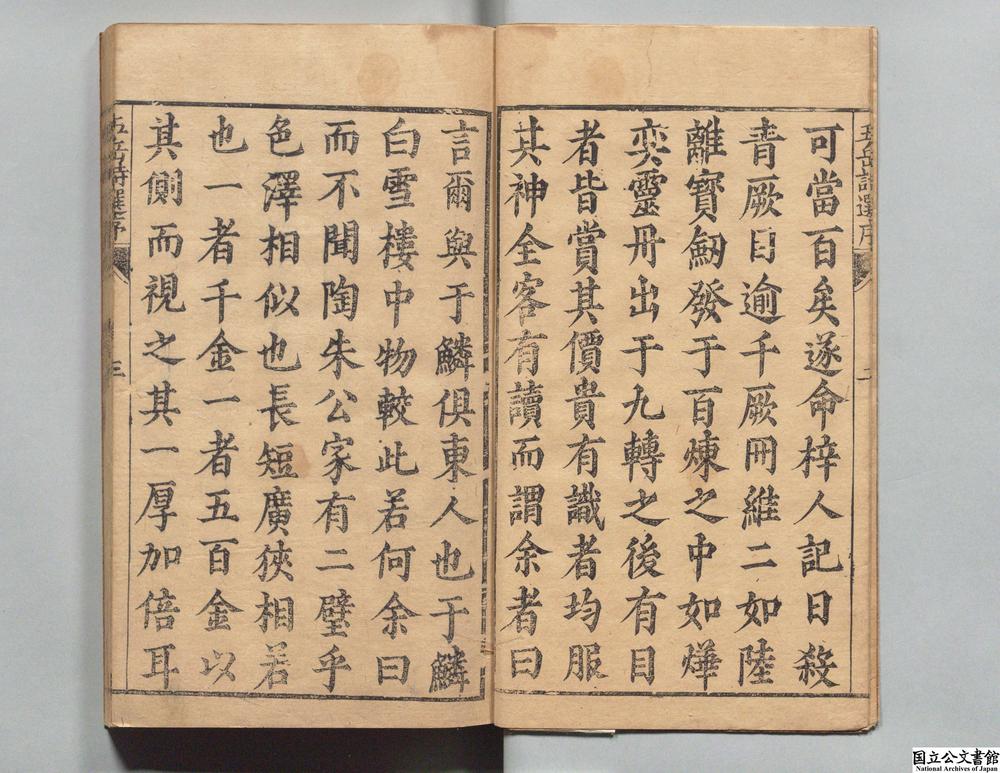 五岳詩選序
二
可當百矣遂命梓人記日殺
青厥目逾千厥冊維二如陸
離寶劒發于百煉之中如燁
奕靈丹出于九轉之後有目
者皆賞其價貴有識者均服
其神全客有讀而謂余者曰
言爾與于鱗俱東人也于鱗
白雪樓中物較此若何余曰
而不聞陶朱公家有二璧乎
色澤相似也長短廣狹相若
也一者千金一者五百金以
其側而視之其一厚加倍耳
五岳詩選序
三
国立公文書館
National Archives of Japan